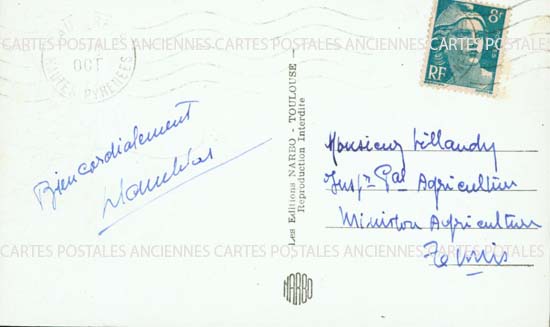 OCT
HAUTES PYRENEES
8F
RF
CARTES POSTALES ANCIENNES CARTES POSTALES ANCIENNES CARTES POSTALES ANCIENNES
Bien cordialement
Les Editions NARBO - TOULOUSE
Reproduction Interdite
Monsieur
Insp.r Gal Agriculture
Ministère Agriculture
CARTES POSTALES ANCIENNES CARTES POSTALES ANCIENNES CARTES POSTALES ANCIENNES
NARBO